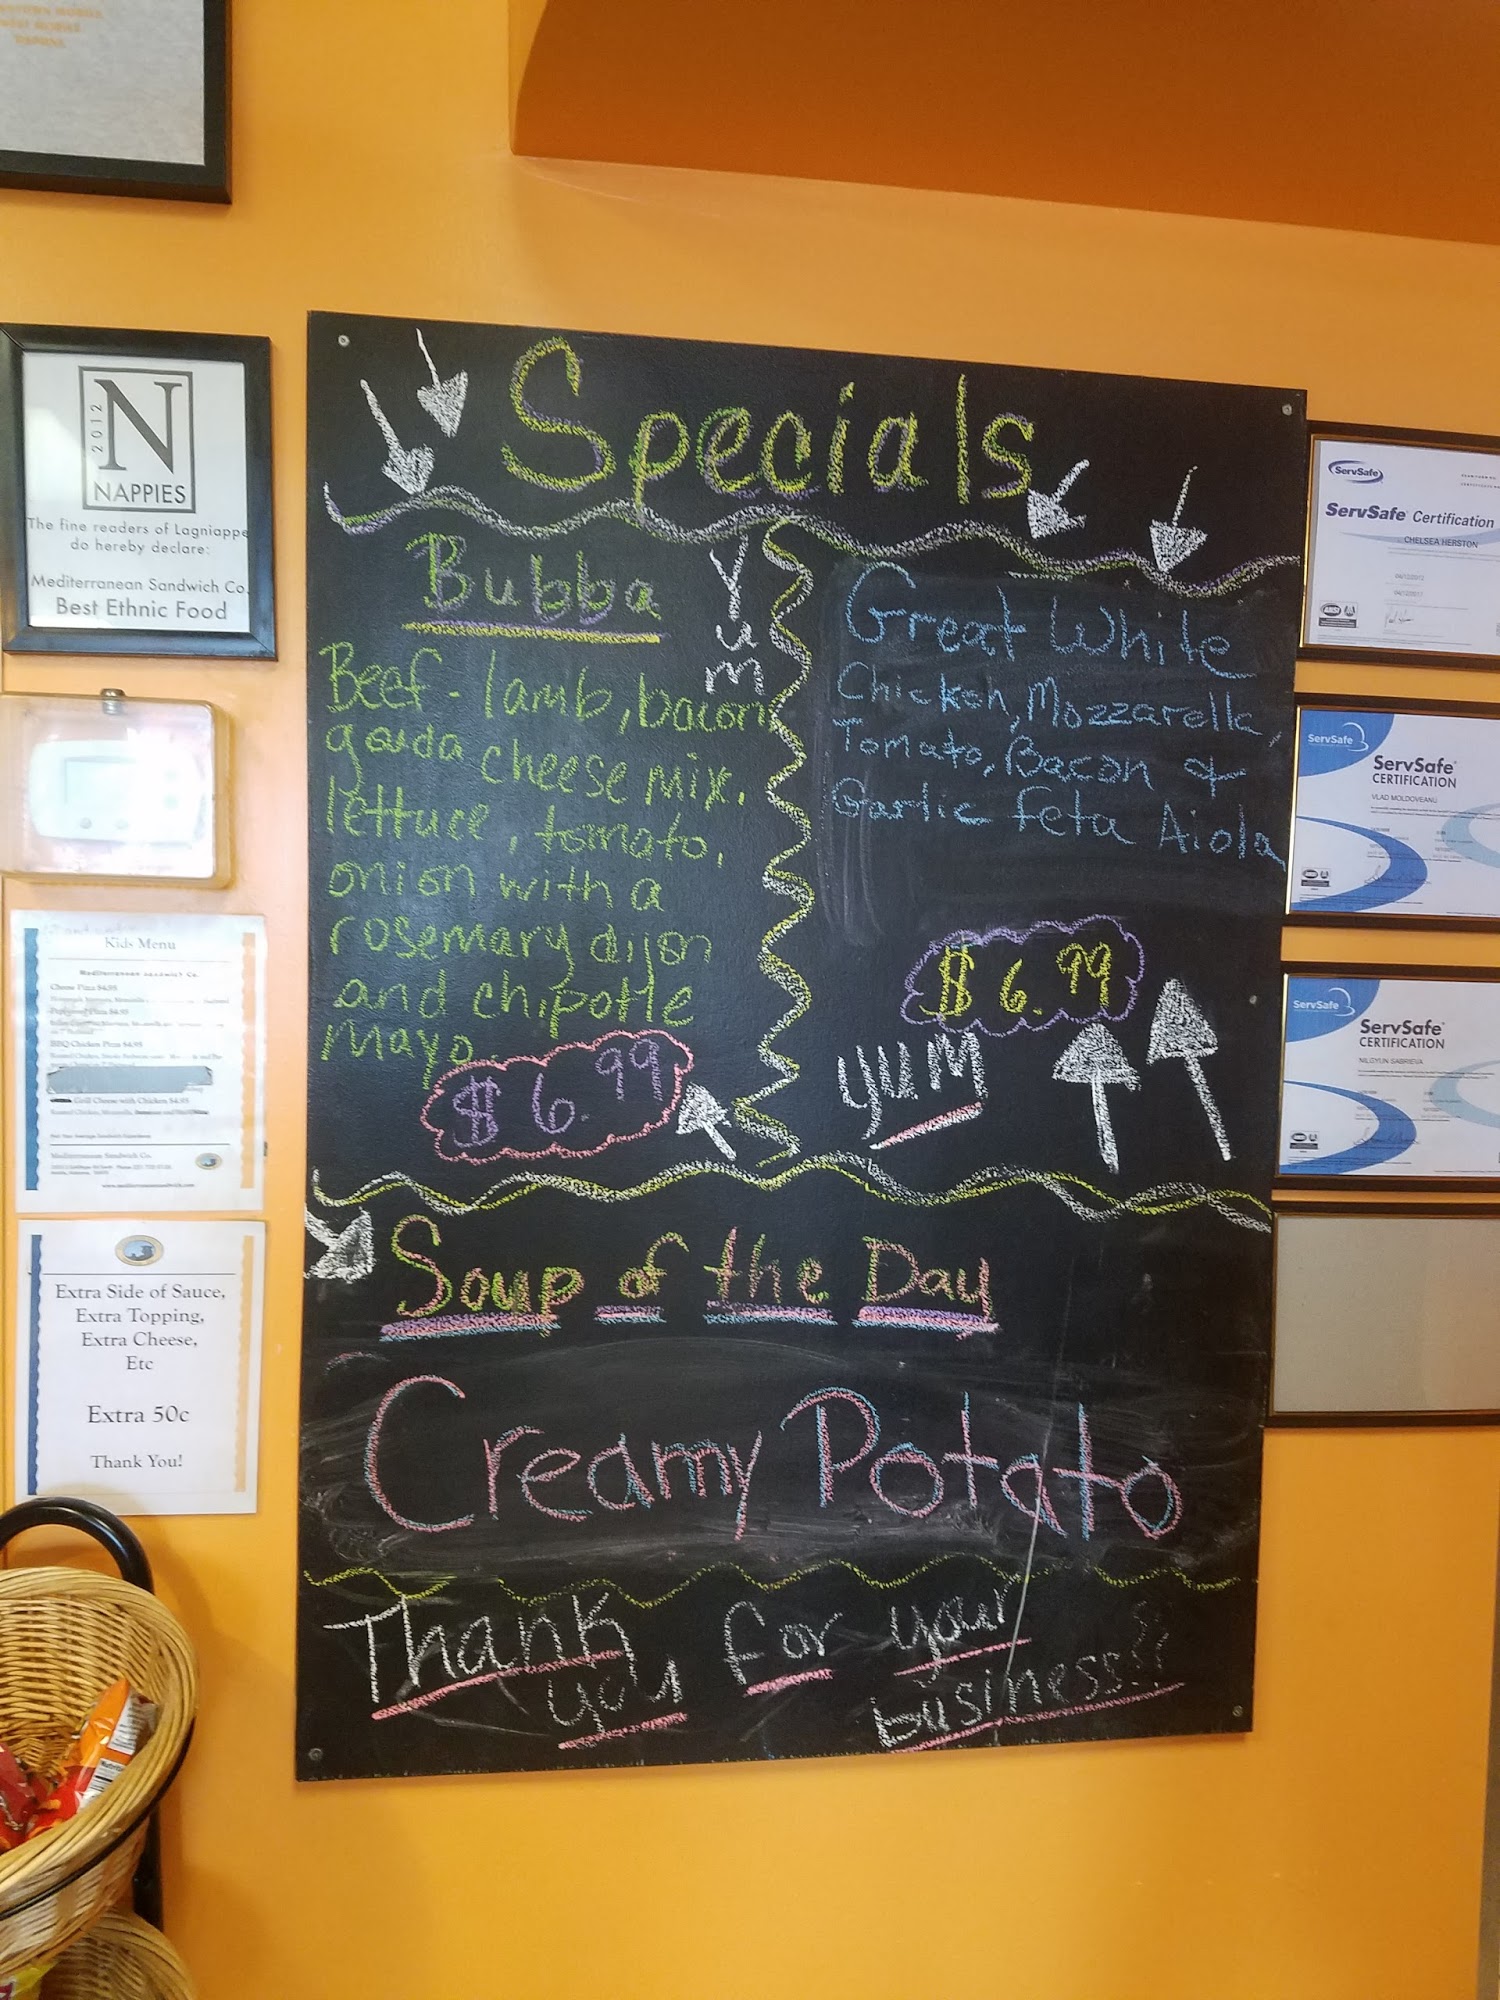 Specials
Bubba
Yum
Beef - lamb, bacon,
gouda cheese mix.
lettuce, tomato,
onion with a
rosemary dijon
and chipotle
mayo.
$6.99
Great White
Chicken, Mozzarella,
Tomato, Bacon &
Garlic Feta Aiola
$6.99
YUM
Soup of the Day
Creamy Potato
Thank you for your business!!
2012
N
NAPPIES
The fine readers of Lagniappe
do hereby declare:
Mediterranean Sandwich Co.
Best Ethnic Food
Kids Menu
Mediterranean Sandwich Co.
Cheese Pizza $4.95
Pepperoni Pizza $4.95
BBQ Chicken Pizza $4.95
Grill Cheese with Chicken $4.95
Mediterranean Sandwich Co.
www.mediterraneansandwich.com
Extra Side of Sauce,
Extra Topping,
Extra Cheese,
Etc
Extra 50c
Thank You!
ServSafe
ServSafe® Certification
CHELSEA HERSTON
ServSafe
ServSafe®
CERTIFICATION
VLAD MOLDOVEANU
ServSafe
ServSafe®
CERTIFICATION
NILGYUN SABRIEVA